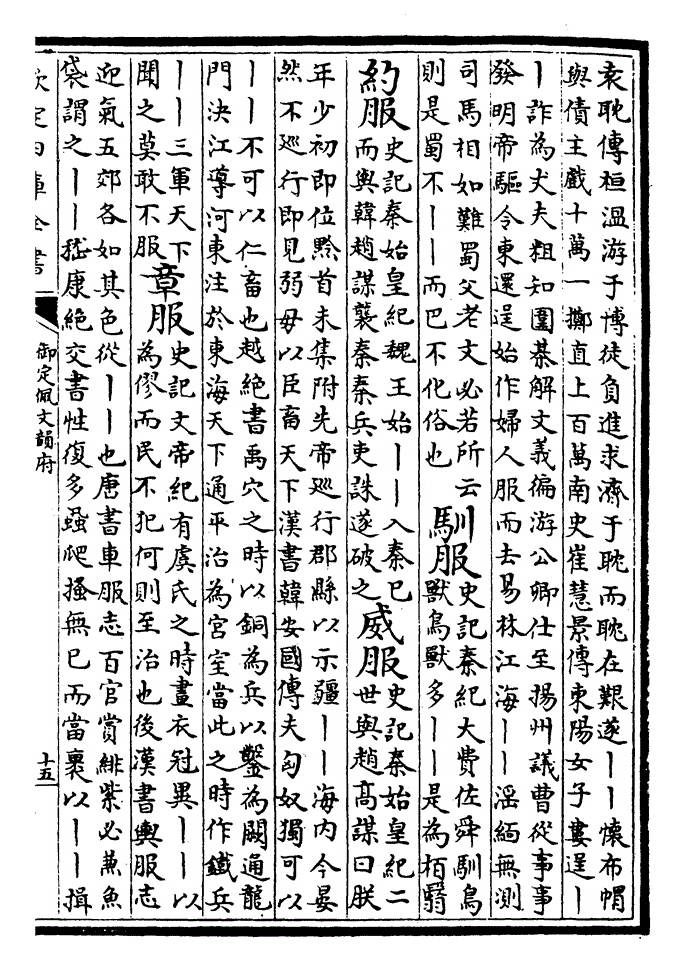 袁耽傳桓温游于博徒負進求濟于耽而耽在艱遂丨丨懷布帽
與債主戲十萬一擲直上百萬南史崔慧景傳東陽女子婁逞丨
丨詐為丈夫粗知圍棊解文義徧游公卿仕至揚州議曹從事事
發明帝驅令東還逞始作婦人服而去易林江海丨丨淫緬無測
司馬相如難蜀父老文必若所云
則是蜀不丨丨而巴不化俗也
馴服
史記秦紀大費佐舜馴鳥
獸鳥獸多丨丨是為栢翳
約服
史記秦始皇紀魏王始丨丨入秦已
而與韓趙謀襲秦秦兵吏誅遂破之
威服
史記秦始皇紀二
世與趙高謀曰朕
年少初即位黔首未集附先帝巡行郡縣以示彊丨丨海内今晏
然不巡行即見弱毋以臣畜天下漢書韓安國傳夫匈奴獨可以
丨丨不可以仁畜也越絶書禹穴之時以銅為兵以鑿為闕通龍
門決江導河東注於東海天下通平治為宫室當此之時作鐵兵
丨丨三軍天下
聞之莫敢不服
章服
史記文帝紀有虞氏之時畫衣冠異丨丨以
為僇而民不犯何則至治也後漢書輿服志
迎氣五郊各如其色從丨丨也唐書車服志百官賞緋紫必兼魚
袋謂之丨丨嵇康絶交書性復多蝨爬搔無已而當裹以丨丨揖
欽定四庫全書
御定佩文韻府
十五